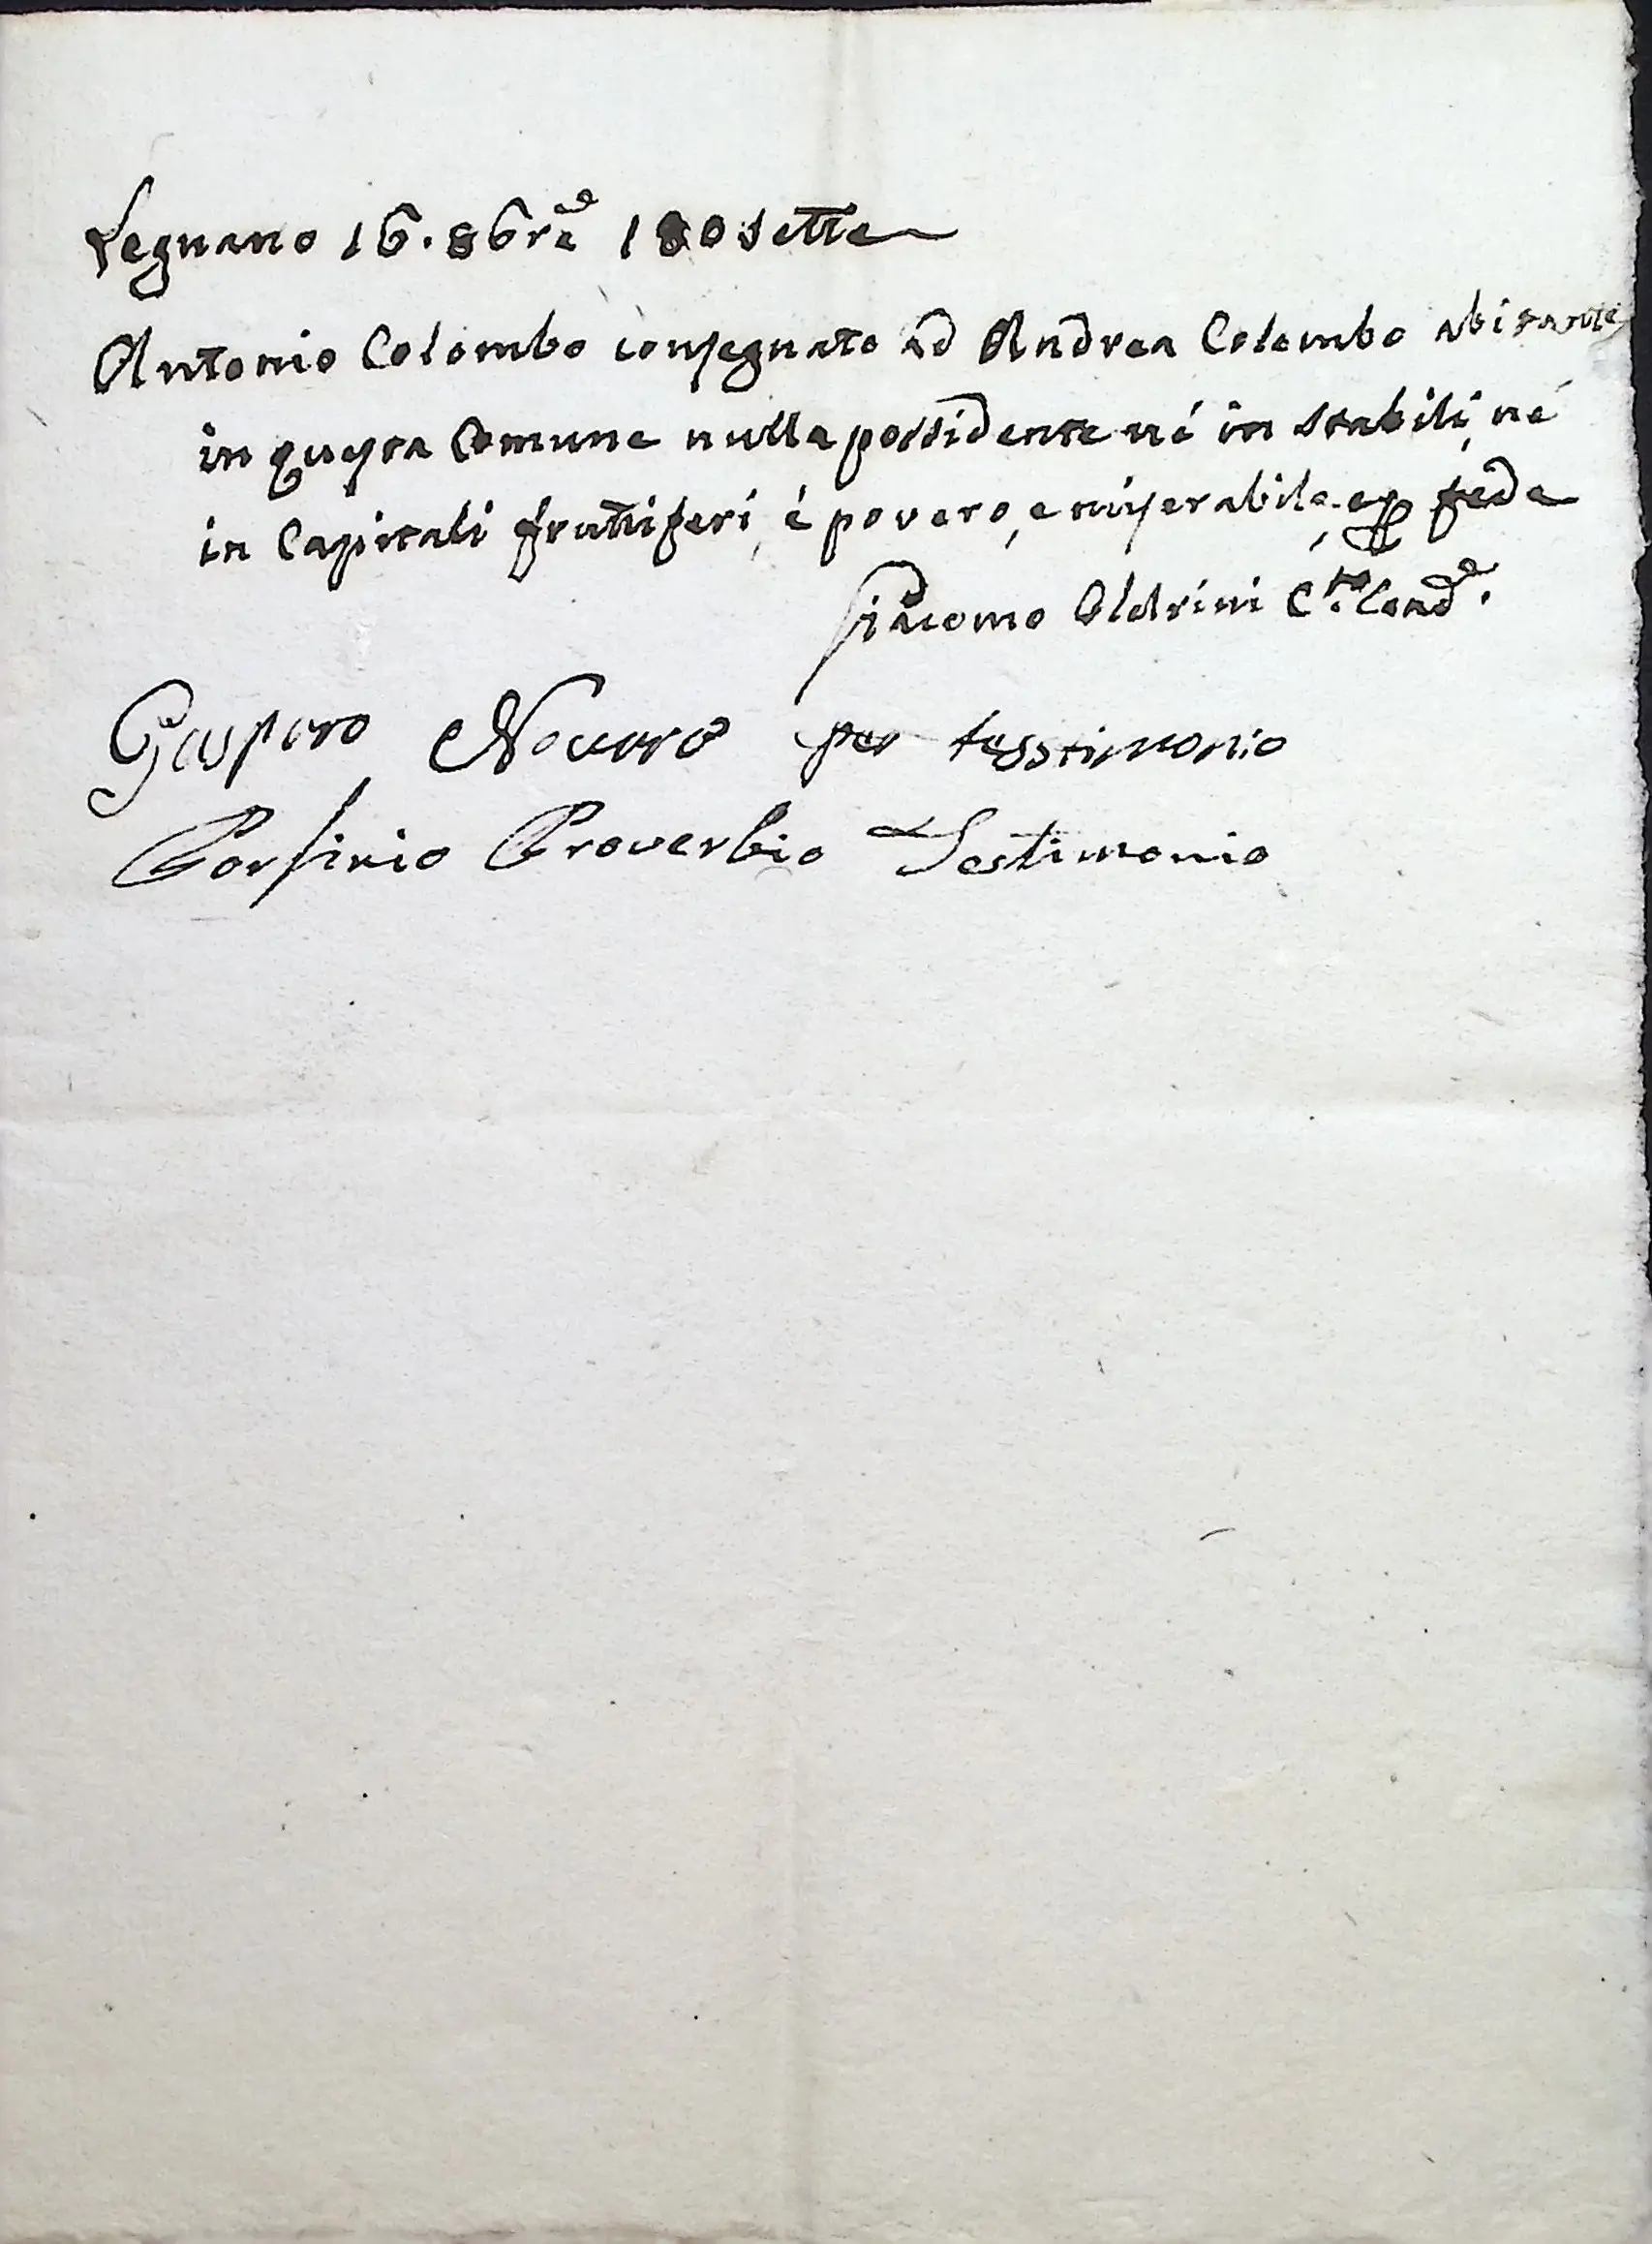 Legnano 16. 86re 180sette
Antonio Colombo consegnato ad Andrea Colombo abitante
in questa Comune nulla possidente né in stabili, né
in Capitali fruttiferi, é povero, e miserabile, e per fede
Giacomo Oldrini C.to Cand.e
Gaspero per tesstimonio
Porfirio Proverbio Testimonio